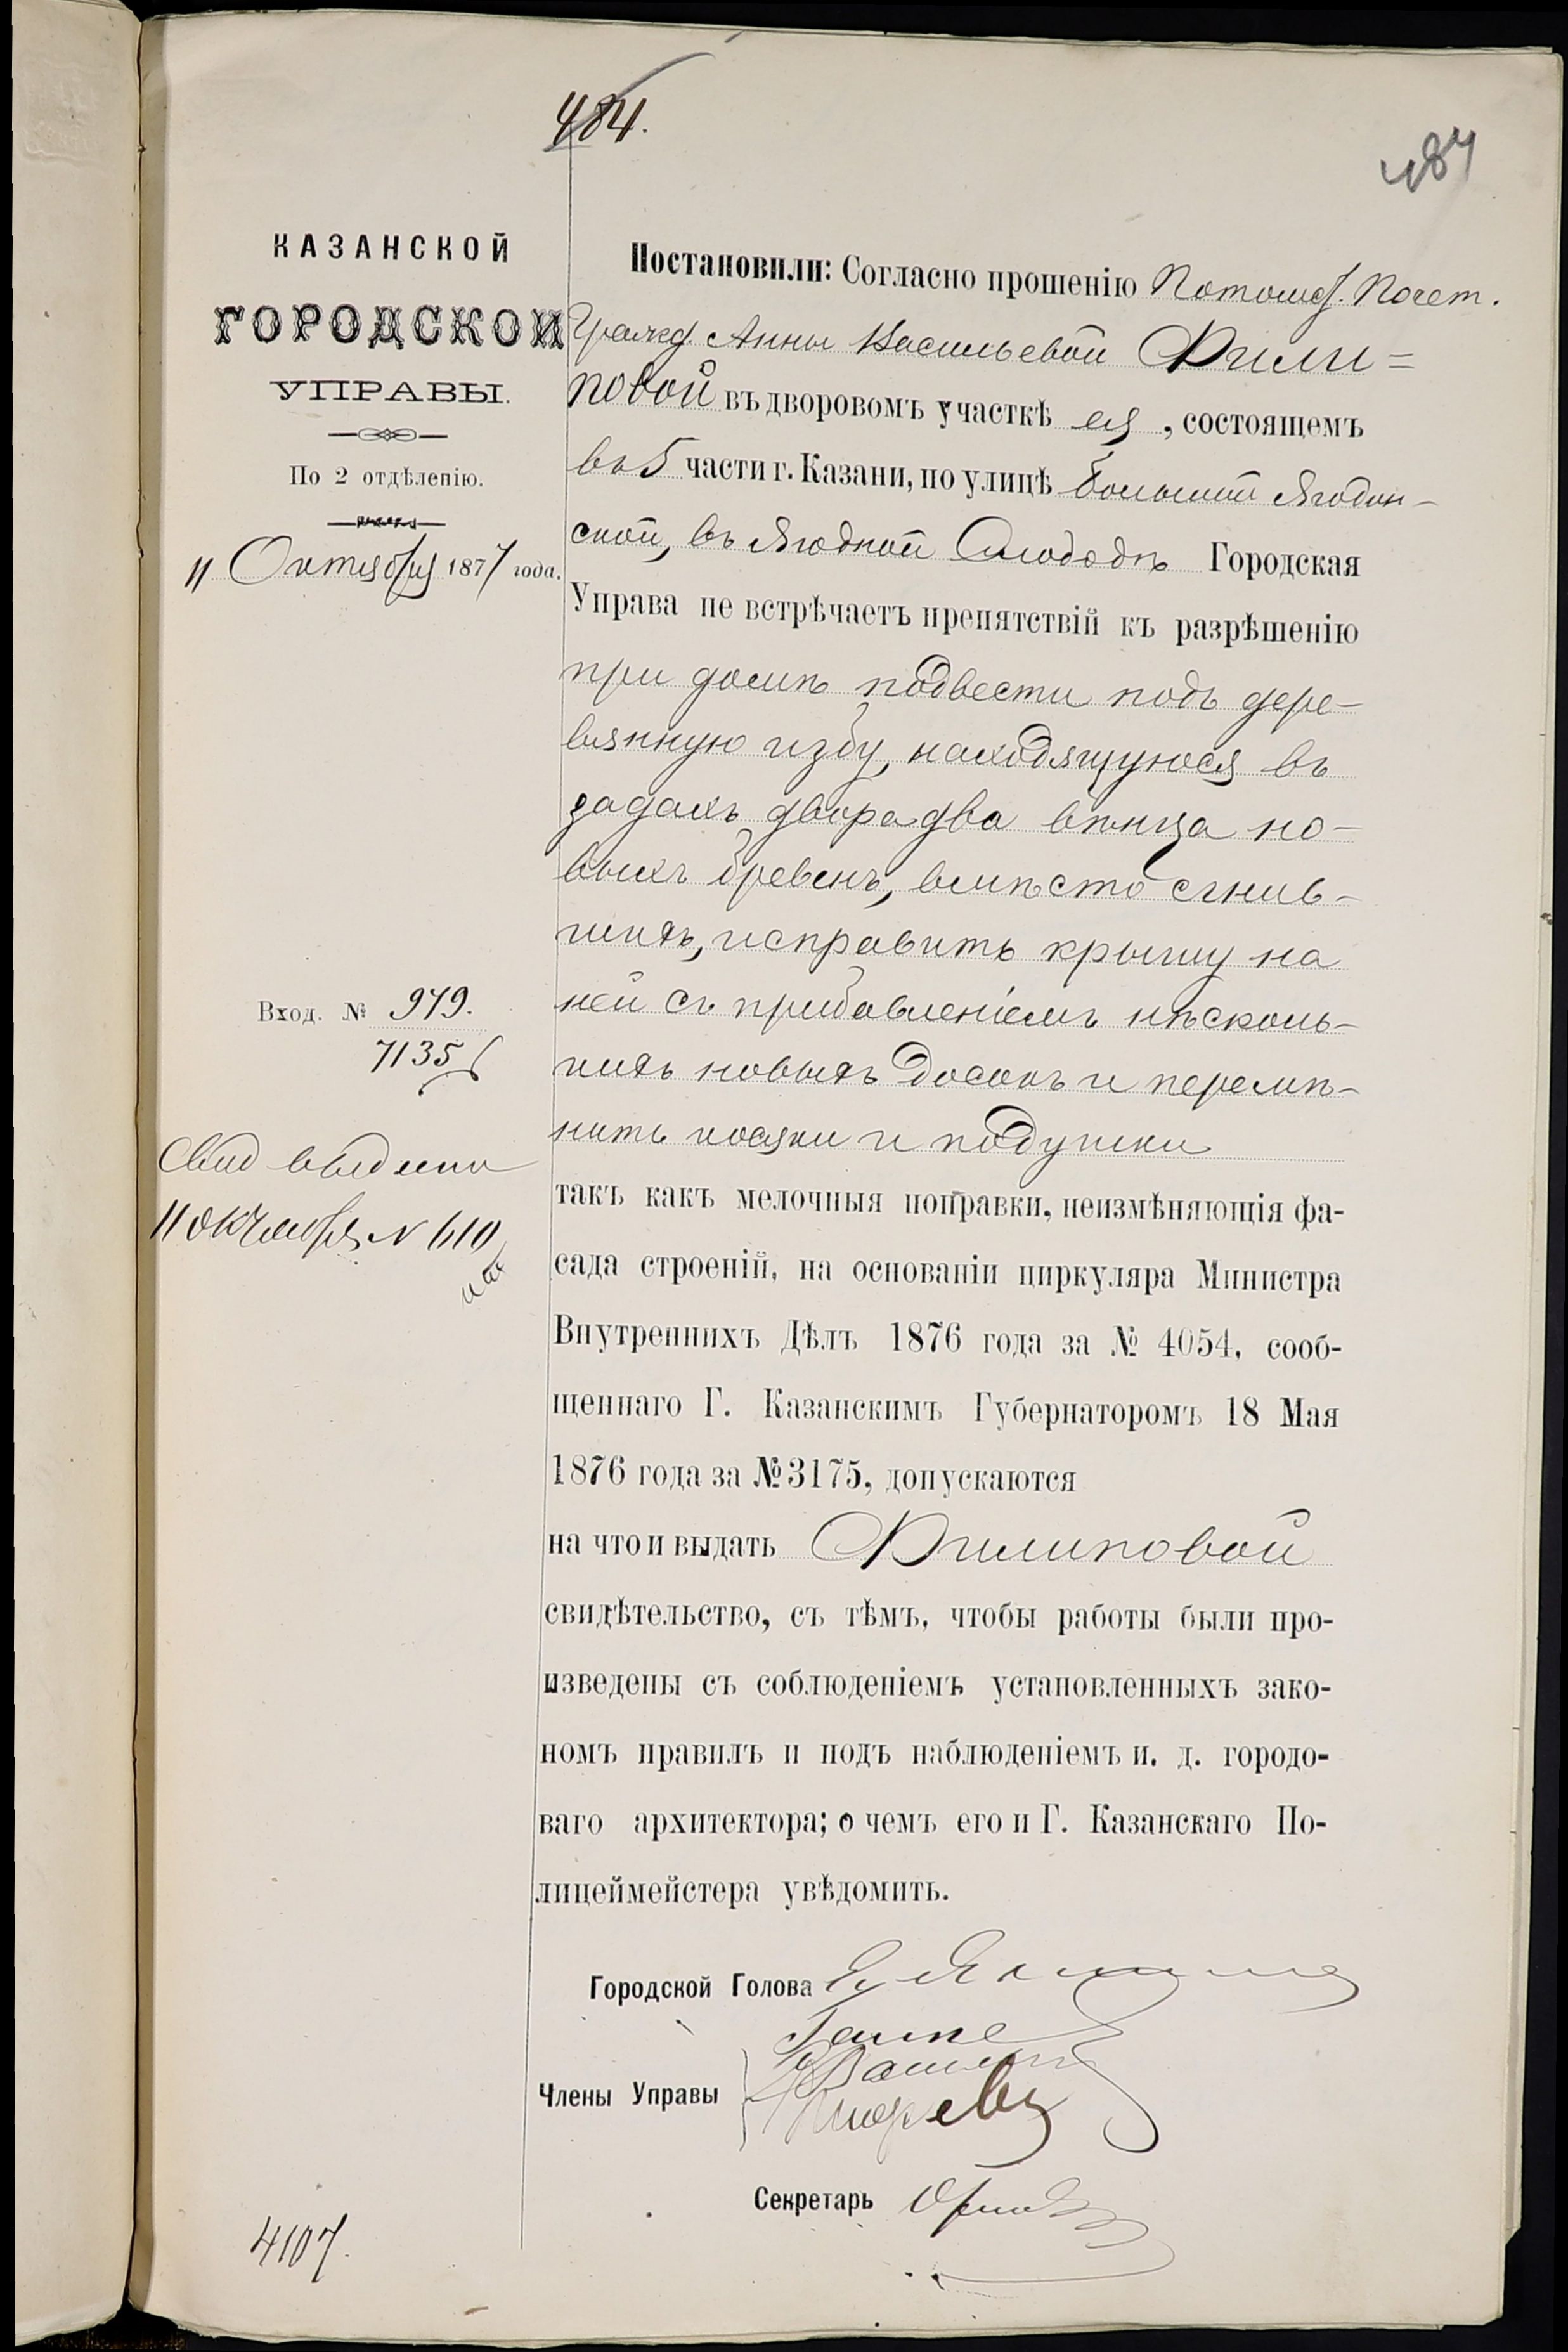 484.
484
КАЗАНСКОЙ
ГОРОДСКОЙ
УПРАВЫ.
По 2 отдѣленію.
11 Октября 1877 года.
Вход. № 979.
7135
Свид выдано
11 октября N 610
4107.
Постановили: Согласно прошенію Потомст. Почет.
Гражд. Анны Васильевой Фили=
повой въ дворовомъ участкѣ ея, состоящемъ
въ 5 части г. Казани, по улицѣ большой Ягодин-
ской, въ Ягодной Слободѣ Городская
Управа не встрѣчаетъ препятствій къ разрѣшенію
при домѣ подвести подъ дере-
вянную избу, находящуюся въ
задахъ двора два вѣнца но-
выхъ бревенъ, вмѣсто сгнив-
шихъ, исправить крышу на
ней съ прибавленіемъ нѣсколь-
кихъ новыхъ досокъ и перемѣ-
нить косяки и подушки
такъ какъ мелочныя поправки, неизмѣняющія фа-
сада строеній, на основаніи циркуляра Министра
Внутреннихъ Дѣлъ 1876 года за № 4054, сооб-
щеннаго Г. Казанскимъ Губернаторомъ 18 Мая
1876 года за № 3175, допускаются
на что и выдать Филиповой
свидѣтельство, съ тѣмъ, чтобы работы были про-
изведены съ соблюденіемъ установленныхъ зако-
номъ правилъ и подъ наблюденіемъ и. д. городо-
ваго архитектора; о чемъ его и Г. Казанскаго По-
лицеймейстера увѣдомить.
Городской Голова
Члены Управы
Секретарь